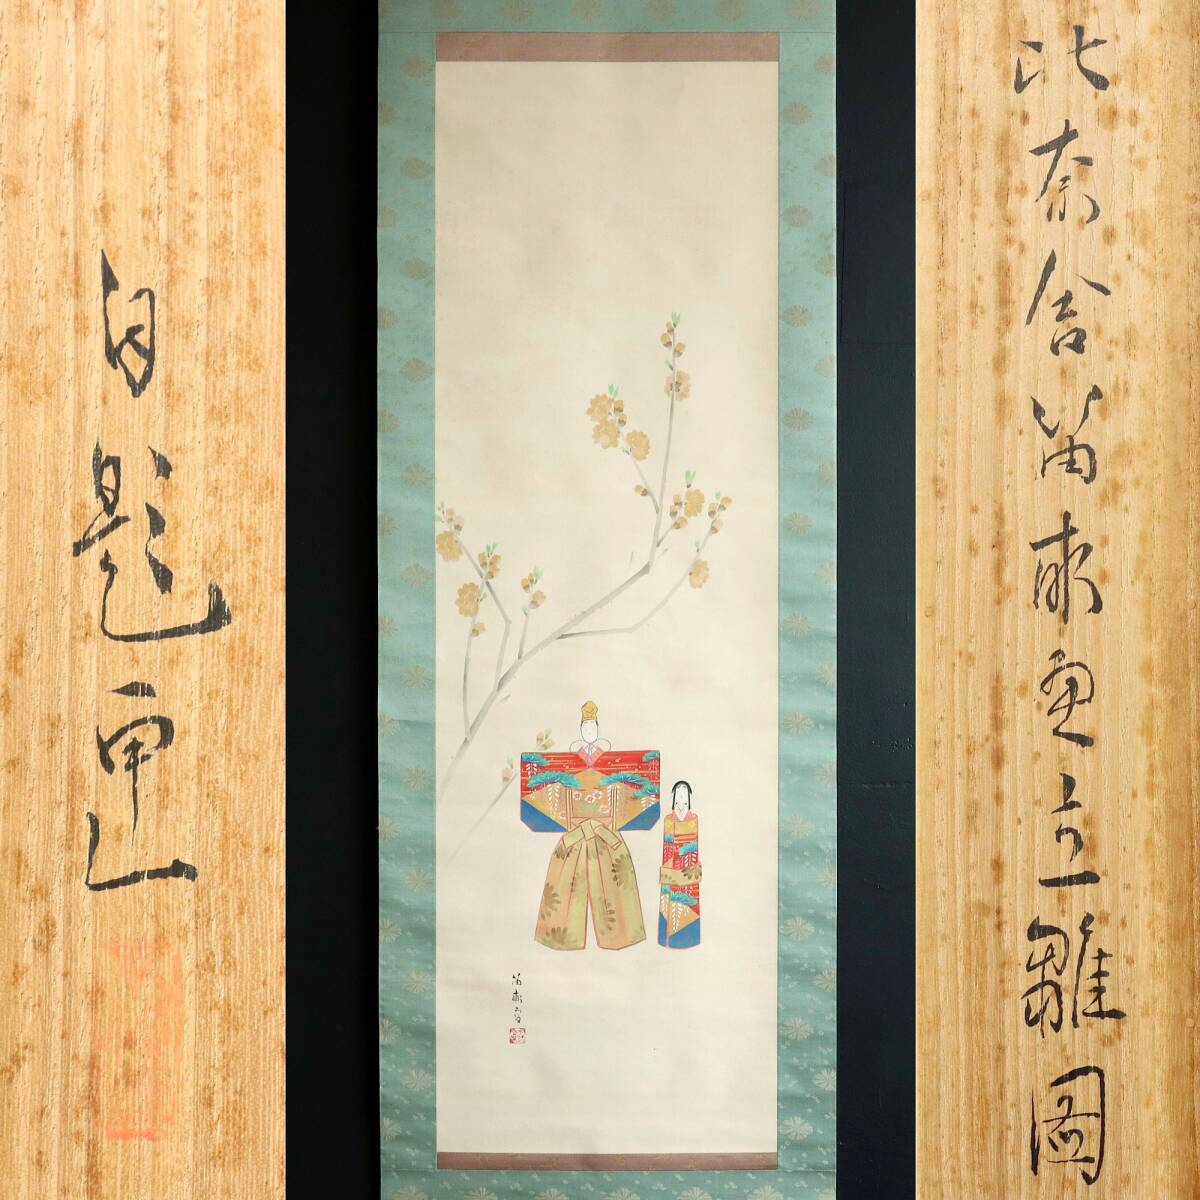 比奈舎笛畝画立雛圖
笛畝
自題 山